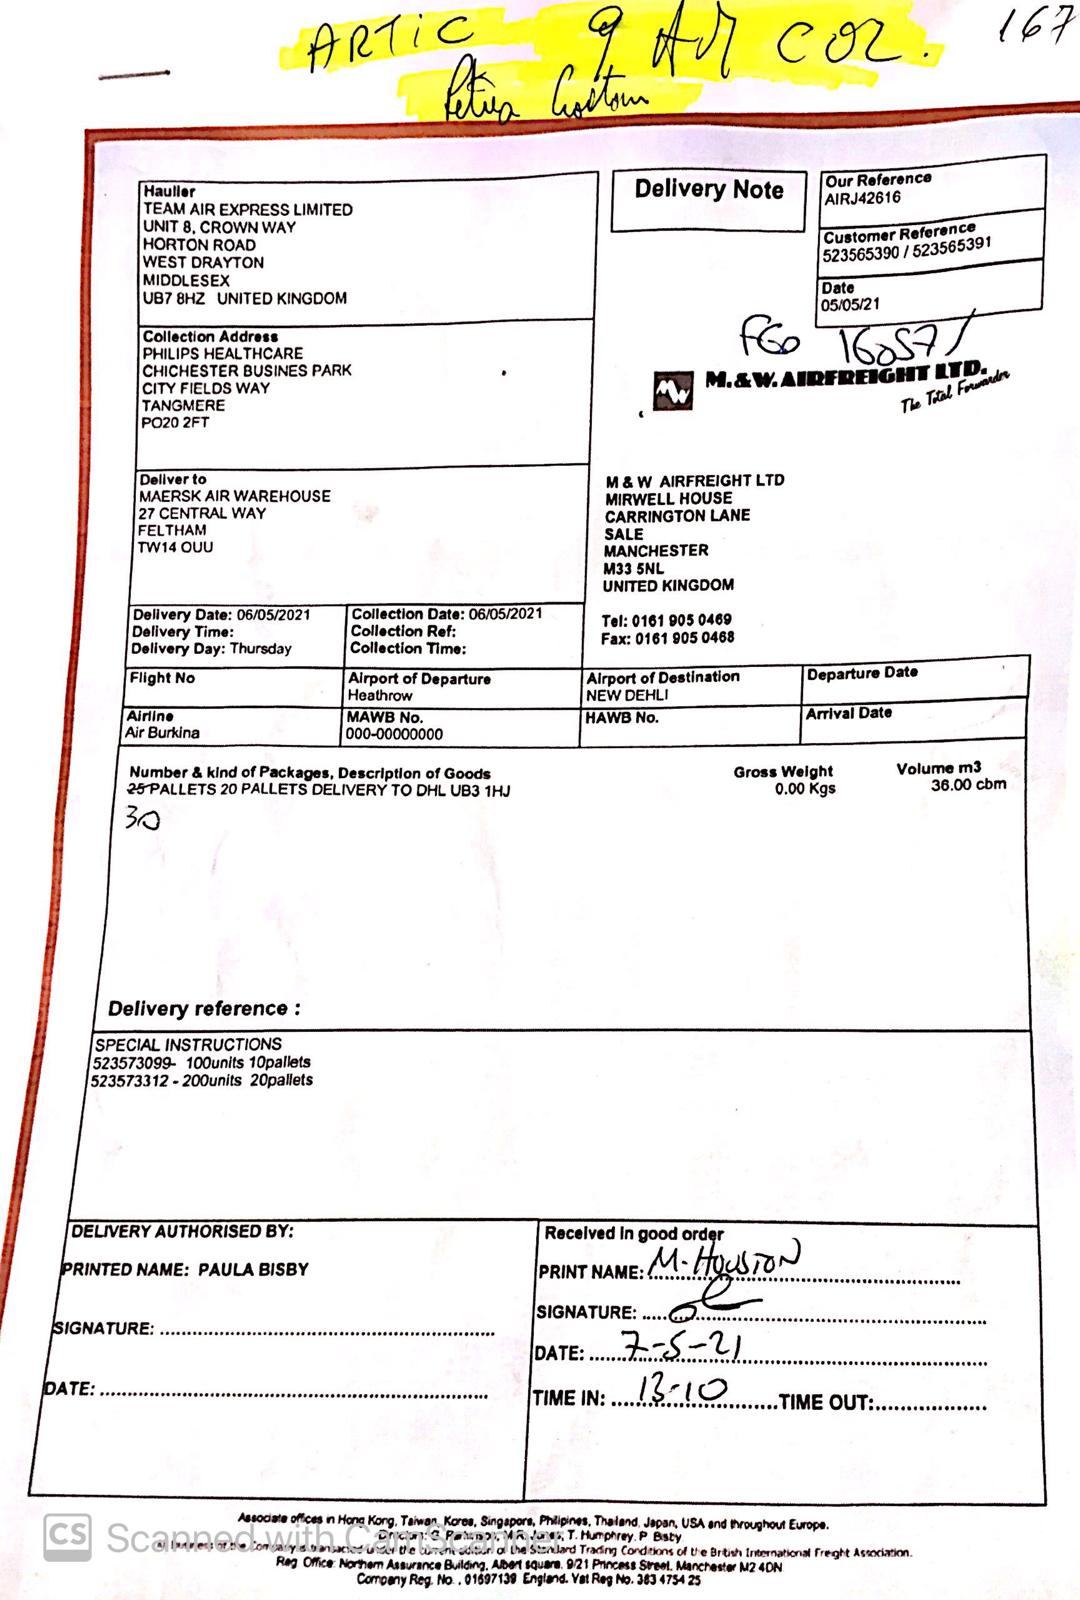 ARTIC
167
Delivery Note
Our Reference
AIRJ42616
Customer Reference
523565390 / 523565391
Date
05/05/21
Haulier
TEAM AIR EXPRESS LIMITED
UNIT 8, CROWN WAY
HORTON ROAD
WEST DRAYTON
MIDDLESEX
UB7 8HZ UNITED KINGDOM
Collection Address
PHILIPS HEALTHCARE
CHICHESTER BUSINES PARK
CITY FIELDS WAY
TANGMERE
PO20 2FT
MW
M.&W. AIRFREIGHT LTD.
The Total Forwarder
Deliver to
MAERSK AIR WAREHOUSE
27 CENTRAL WAY
FELTHAM
TW14 OUU
M & W AIRFREIGHT LTD
MIRWELL HOUSE
CARRINGTON LANE
SALE
MANCHESTER
M33 5NL
UNITED KINGDOM
Tel: 0161 905 0469
Fax: 0161 905 0468
Delivery Date: 06/05/2021
Delivery Time:
Delivery Day: Thursday
Collection Date: 06/05/2021
Collection Ref:
Collection Time:
Flight No
Airport of Departure
Heathrow
Airport of Destination
NEW DEHLI
Departure Date
Airline
Air Burkina
MAWB No.
000-00000000
HAWB No.
Arrival Date
Number & kind of Packages, Description of Goods
Gross Weight
Volume m3
25 PALLETS 20 PALLETS DELIVERY TO DHL UB3 1HJ
0.00 Kgs
36.00 cbm
30
Delivery reference :
SPECIAL INSTRUCTIONS
523573099- 100units 10pallets
523573312 - 200units 20pallets
DELIVERY AUTHORISED BY:
PRINTED NAME: PAULA BISBY
SIGNATURE:
DATE:
Received in good order
PRINT NAME: M. HOUSTON
SIGNATURE:
DATE: 7-5-21
TIME IN: 13-10 TIME OUT:
Associate offices in Hong Kong, Taiwan, Korea, Singapore, Philipines, Thailand, Japan, USA and throughout Europe.
T. Humphrey. P Bisby
All business of the Company is transacted under the current edition of the Standard Trading Conditions of the British International Freight Association.
Reg Office: Northern Assurance Building, Albert square. 9/21 Princess Street, Manchester M2 4DN
Company Reg. No. . 01697139 England. Vat Reg No. 383 4754 25
CS Scanned with CamScanner